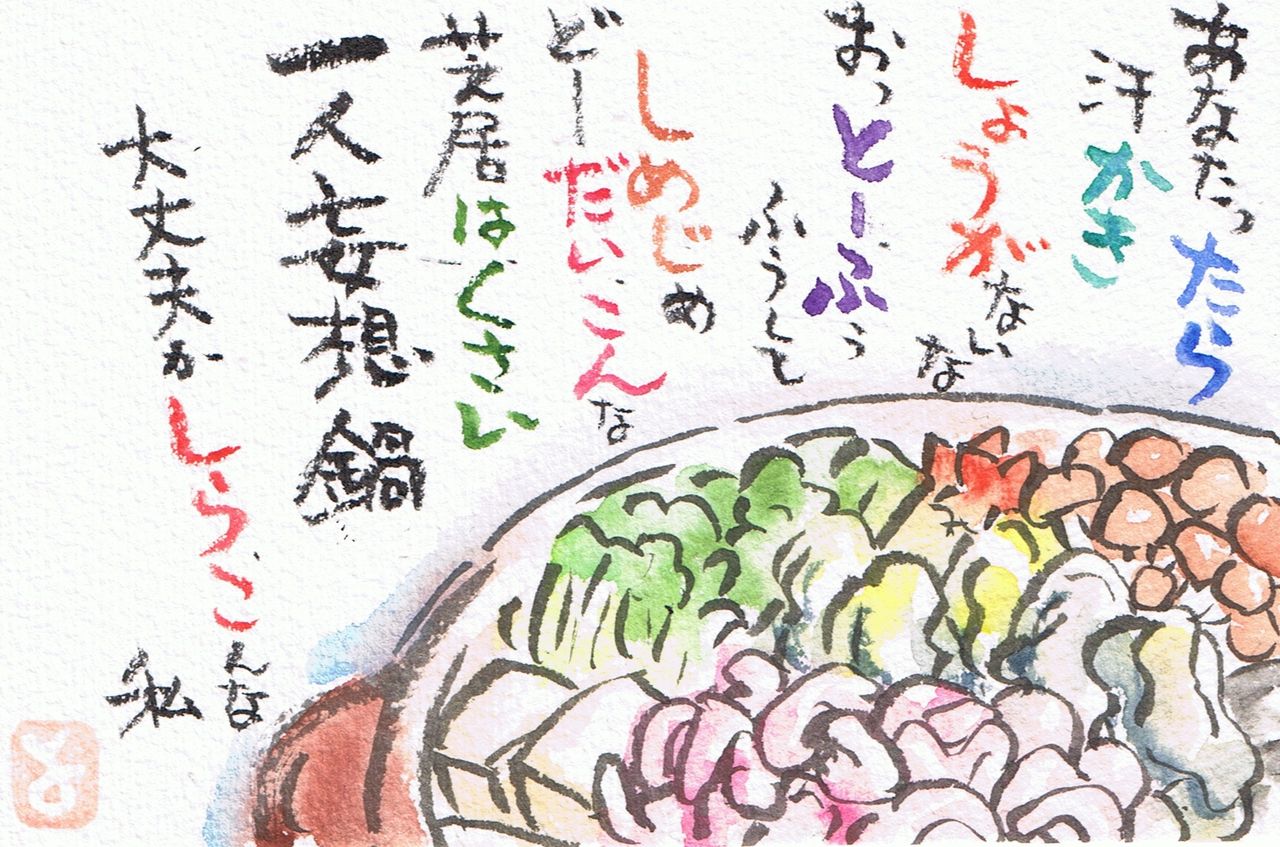 あなたったら
汗かき
しょうがないな
おっとーふぅ
ふうして
しめじめ
どーだいこんな
芝居はくさい
一人妄想鍋
大丈夫かしらこんな
私
と